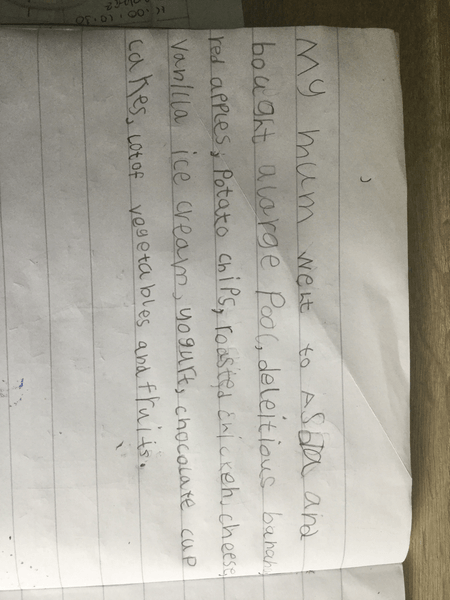 My mum went to ASDA and
bought a large Pool, deleitious banana,
red apples, Potato chips, roasted chicken, cheese,
Vanilla ice cream, yogurt, chocolate cup
cakes, lot of vegetables and fruits.